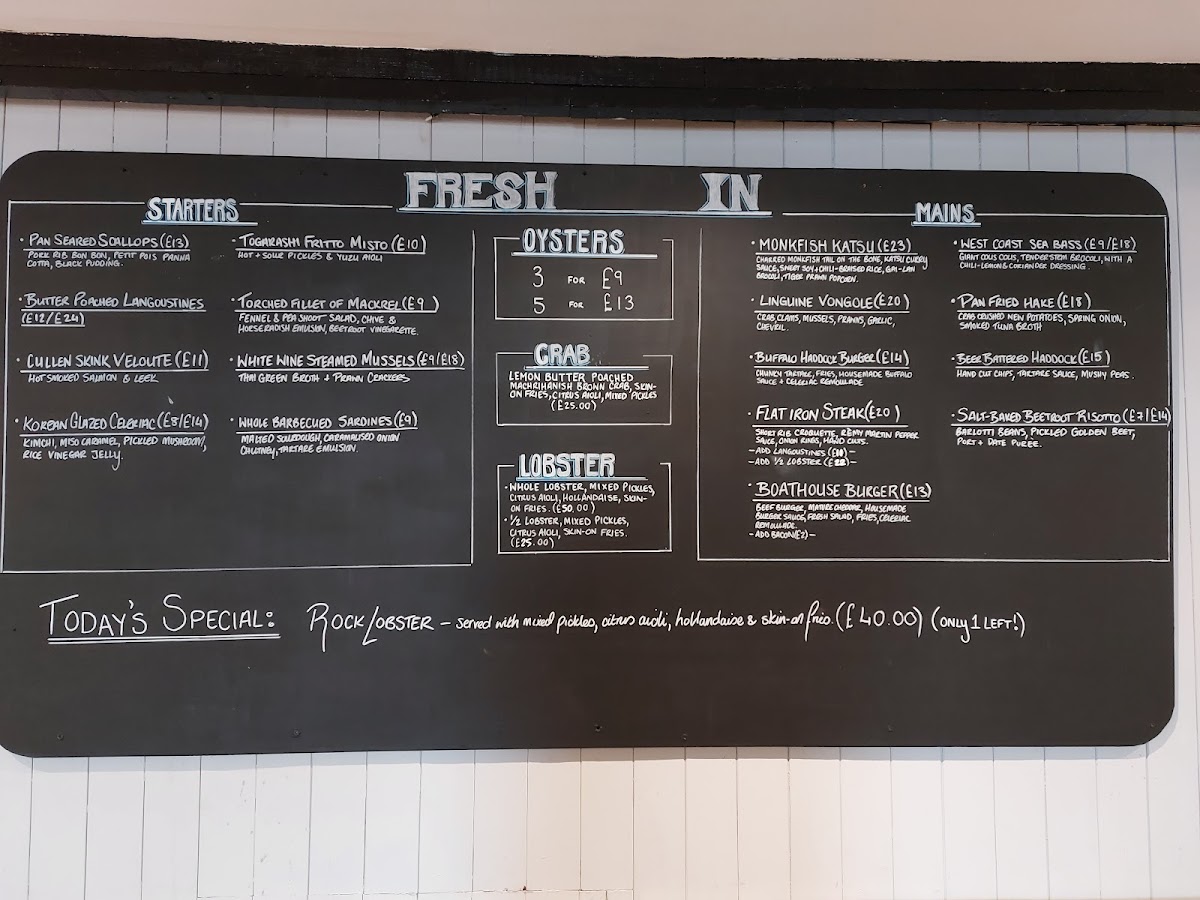 FRESH IN
STARTERS
· PAN SEARED SCALLOPS (£13)
PORK RIB BON BON, PETIT POIS PANNA
COTTA, BLACK PUDDING.
· BUTTER POACHED LANGOUSTINES
(£12/£24)
· CULLEN SKINK VELOUTE (£11)
HOT SMOKED SALMON & LEEK
· KOREAN GLAZED CELERIAC (£8/£14)
KIMCHI, MISO CARAMEL, PICKLED MUSHROOM,
RICE VINEGAR JELLY.
· TOGARASHI FRITTO MISTO (£10)
HOT + SOUR PICKLES & YUZU AIOLI
· TORCHED FILLET OF MACKREL (£9)
FENNEL & PEA SHOOT SALAD, CHIVE &
HORSERADISH EMULSION, BEETROOT VINEGARETTE.
· WHITE WINE STEAMED MUSSELS (£9/£18)
THAI GREEN BROTH + PRAWN CRACKERS
· WHOLE BARBECUED SARDINES (£9)
MALTED SOURDOUGH, CARAMALISED ONION
CHUTNEY, TARTARE EMULSION.
OYSTERS
3 FOR £9
5 FOR £13
CRAB
LEMON BUTTER POACHED
MACHRIHANISH BROWN CRAB, SKIN-
ON FRIES, CITRUS AIOLI, MIXED PICKLES
(£25.00)
LOBSTER
· WHOLE LOBSTER, MIXED PICKLES,
CITRUS AIOLI, HOLLANDAISE, SKIN-
ON FRIES. (£50.00)
· 1/2 LOBSTER, MIXED PICKLES,
CITRUS AIOLI, SKIN-ON FRIES.
(£25.00)
MAINS
· MONKFISH KATSU (£23)
CHARRED MONKFISH TAIL ON THE BONE, KATSU CURRY
SAUCE, SWEET SOY + CHILI-BRAISED RICE, GAI-LAN
BROCOLI, TIGER PRAWN POPCORN.
· LINGUINE VONGOLE (£20)
CRAB, CLAMS, MUSSELS, PRAWNS, GARLIC,
CHERVIL.
· BUFFALO HADDOCK BURGER (£14)
CHUNKY TARTARE, FRIES, HOUSEMADE BUFFALO
SAUCE + CELERIAC REMOULADE
· FLAT IRON STEAK (£20)
SHORT RIB CROQUETTE, RÉMY MARTIN PEPPER
SAUCE, ONION RINGS, HAND CUTS.
– ADD LANGOUSTINES –
– ADD 1/2 LOBSTER –
· BOATHOUSE BURGER (£13)
BEEF BURGER, MATURE CHEDDAR, HOUSEMADE
BURGER SAUCE, FRESH SALAD, FRIES, CELERIAC
REMOULADE.
– ADD BACON (£2) –
· WEST COAST SEA BASS (£9/£18)
GIANT COUS COUS, TENDERSTEM BROCOLI, WITH A
CHILI-LEMON & CORIANDER DRESSING.
· PAN FRIED HAKE (£18)
CRAB CRUSHED NEW POTATOES, SPRING ONION,
SMOKED TUNA BROTH
· BEER BATTERED HADDOCK (£15)
HAND CUT CHIPS, TARTARE SAUCE, MUSHY PEAS.
· SALT-BAKED BEETROOT RISOTTO (£7/£14)
BARLOTTI BEANS, PICKLED GOLDEN BEET,
PORT + DATE PUREE.
TODAY'S SPECIAL: ROCK LOBSTER – served with mixed pickles, citrus aioli, hollandaise & skin-on fries. (£40.00) (ONLY 1 LEFT!)